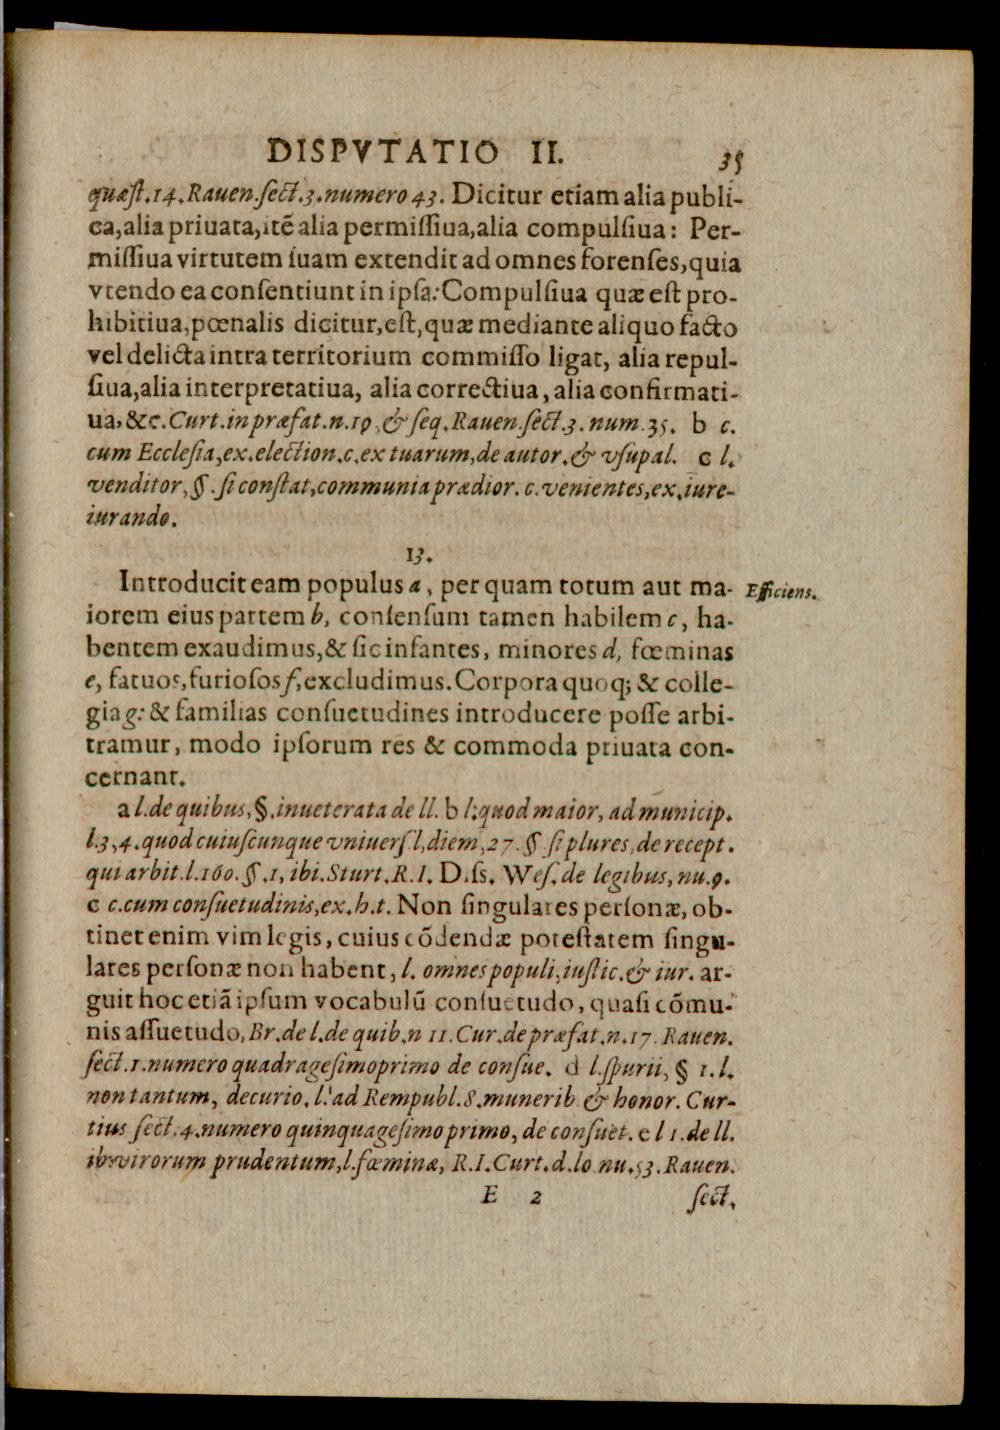 DISPVTATIO II. 35
quæst.14.Rauen.sect.3.numero 43. Dicitur etiam alia publi-
ca,alia priuata,itẽ alia permissiua,alia compulsiua: Per-
missiua virtutem suam extendit ad omnes forenses,quia
vtendo ea consentiunt in ipsa: Compulsiua quæ est pro-
hibitiua,pœnalis dicitur,est,quæ mediante aliquo facto
vel delicta intra territorium commisso ligat, alia repul-
siua,alia interpretatiua, alia correctiua, alia confirmati-
ua,&c. Curt.in præfat.n.19,& seq.Rauen.sect.3.num.35. b c.
cum Ecclesia,ex.election.c.ex tuarum,de autor.& vsupal. c l.
venditor,§.si constat,communia prædior.c.venientes,ex.iure-
iurando.
13.
Introducit eam populus a, per quam totum aut ma-
Efficiens.
iorem eius partem b, consensum tamen habilem c, ha-
bentem exaudimus,& sic infantes, minores d, fœminas
e, fatuos,furiosos f,excludimus. Corpora quoq; & colle-
gia g: & familias consuetudines introducere posse arbi-
tramur, modo ipsorum res & commoda priuata con-
cernant.
a l.de quibus,§.inueterata de ll. b l.quod maior, ad municip.
l.3,4.quod cuiuscunque vniuers.l,diem,27.§ si plures,de recept.
qui arbit.l.160.§.1, ibi.Sturt.R.I. Diss. Wes.de legibus,nu.9.
c c.cum consuetudinis,ex.h.t. Non singulares personæ, ob-
tinet enim vim legis, cuius cõdendæ potestatem singu-
lares personæ non habent, l. omnes populi,iustic.& iur. ar-
guit hoc etiã ipsum vocabulũ consuetudo, quasi cõmu-
nis assuetudo, Br.de l.de quib.n 11.Cur.de præfat.n.17. Rauen.
sect.1.numero quadragesimoprimo de consue. d l.spurii, § 1.l.
non tantum, decurio.l.ad Rempubl.8.munerib & honor. Cur-
tius sect.4.numero quinquagesimo primo, de consuet. e l 1.de ll.
ib.virorum prudentum,l.fœminæ, R.I.Curt.d.lo nu.53.Rauen.
E 2 sect.